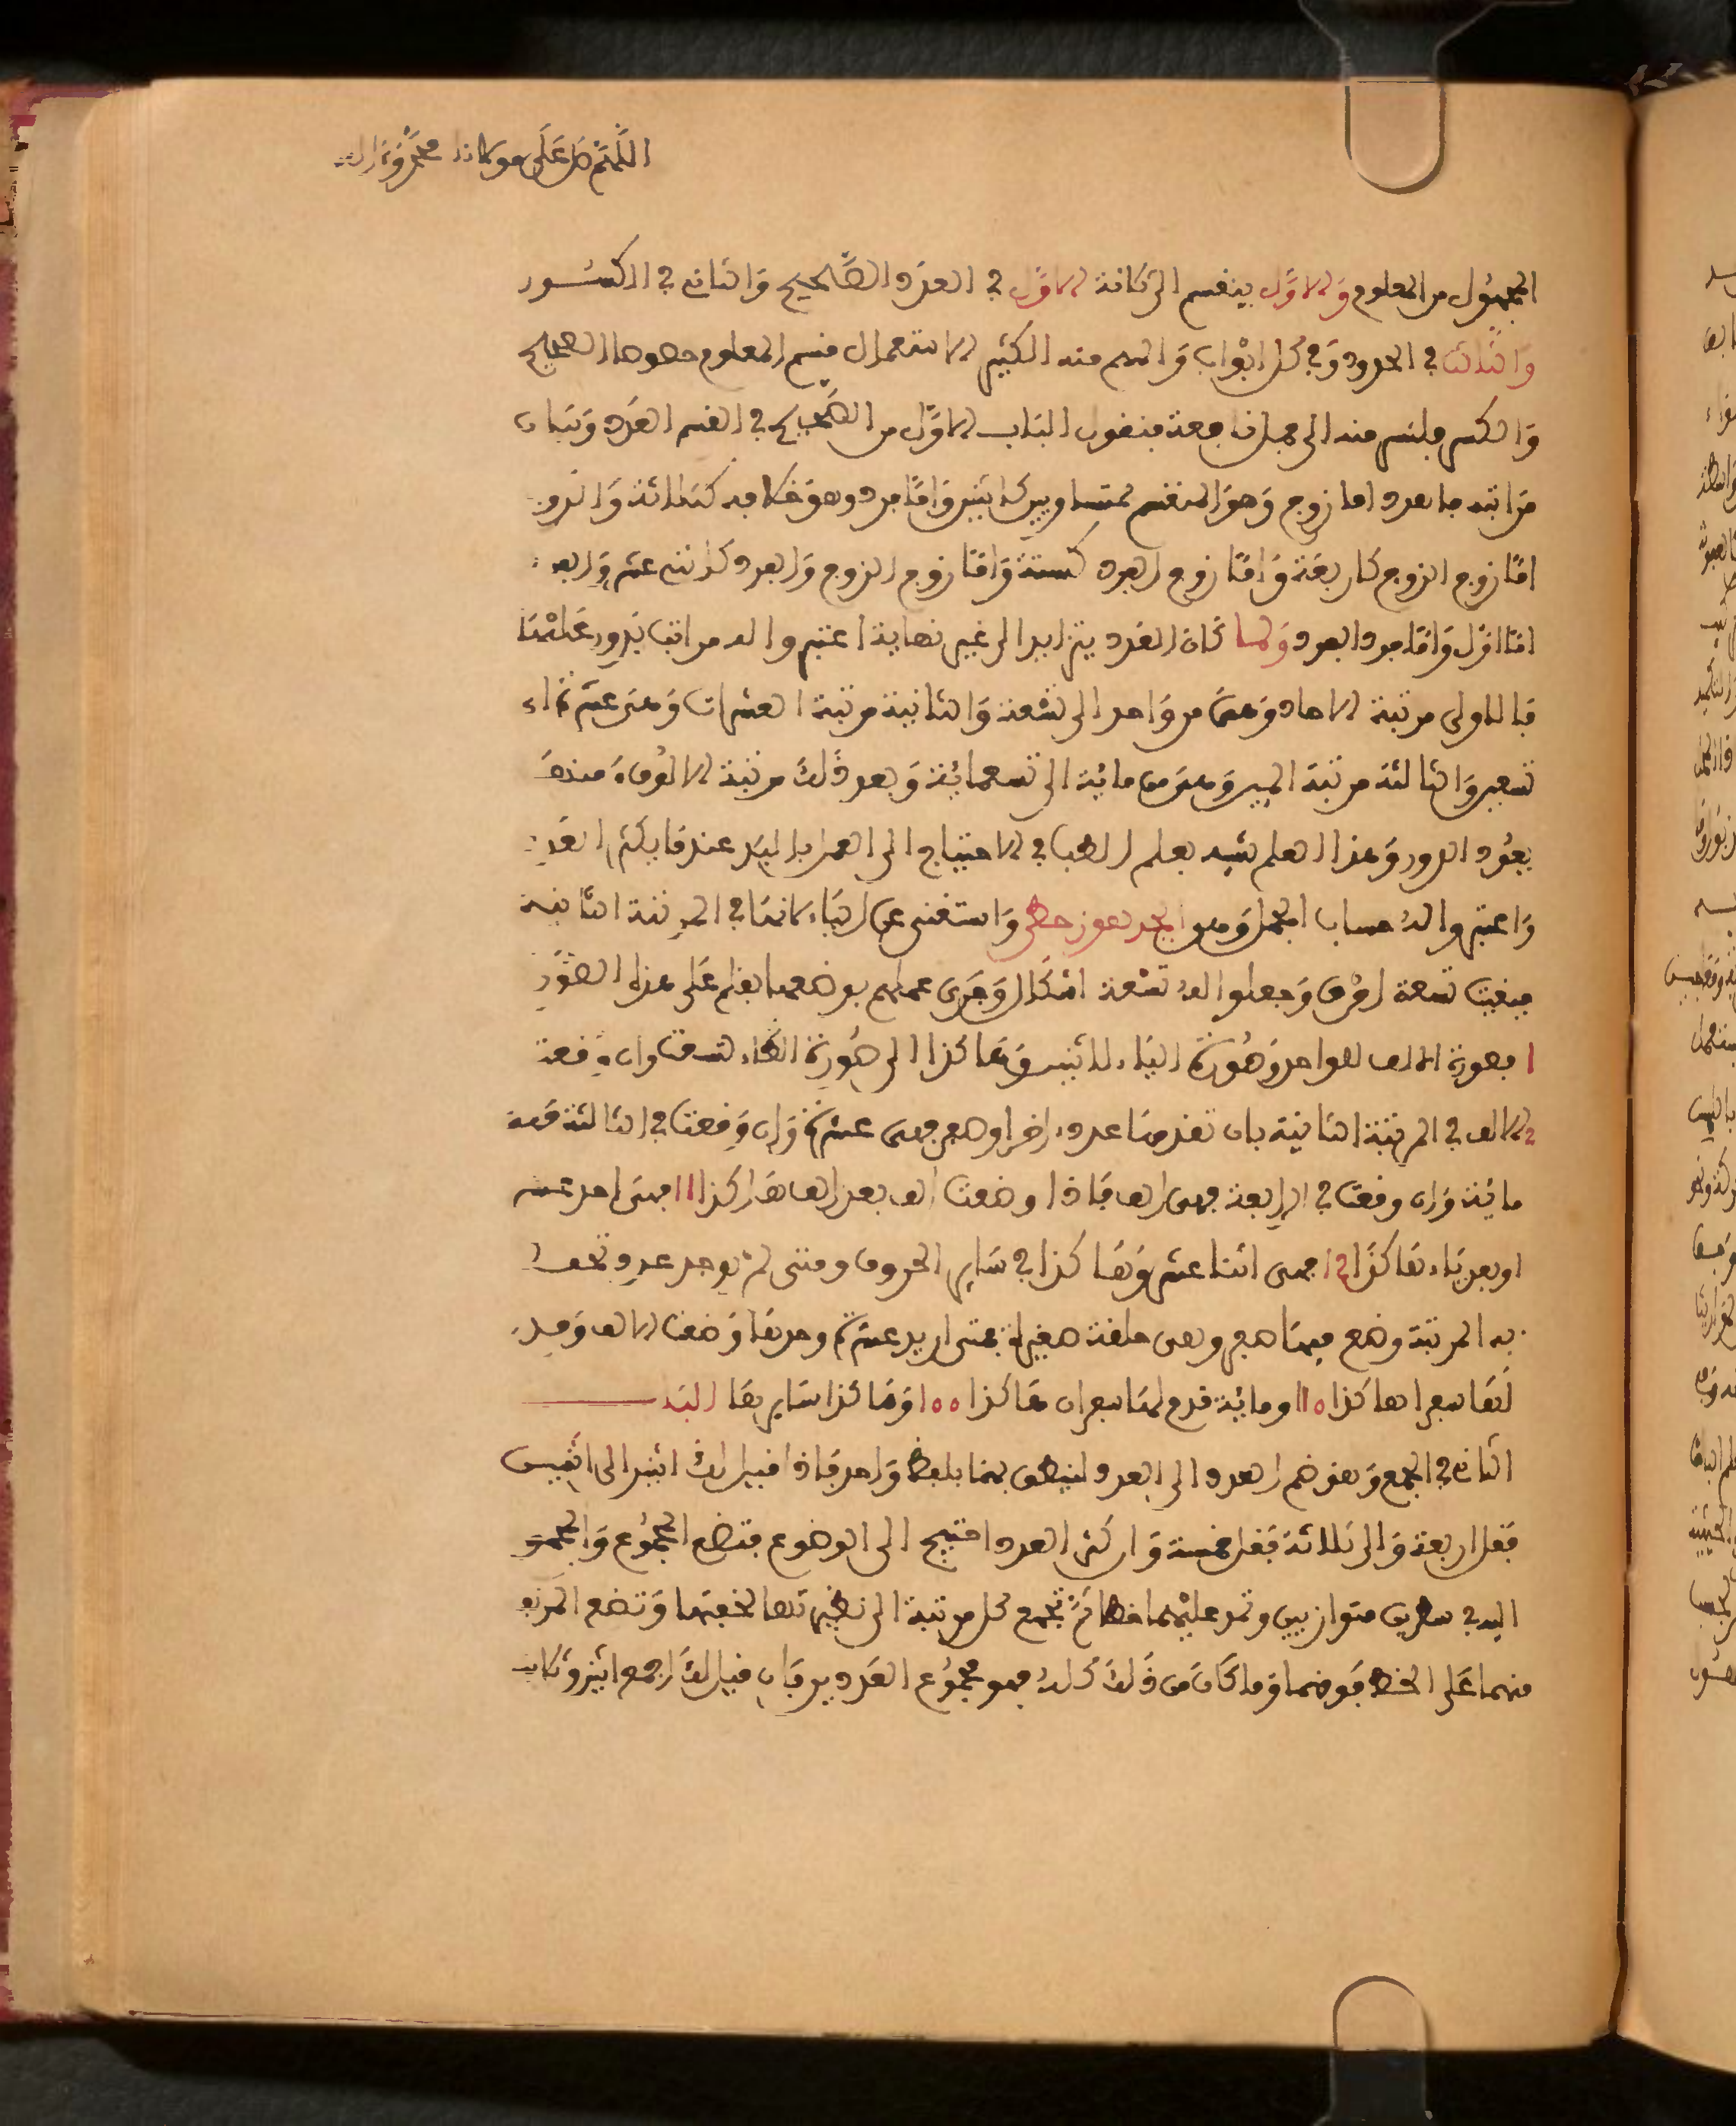 اللهم صل على مولانا محمد وءاله
المجهول من المعلوم والاول ينقسم الى ثلاثة الاول في العدد الصحيح والثاني في الكسور
والثالث في الجذور وفي كل ابواب والمهم منه الكثير الاستعمال قسم المعلوم خصوصا الصحيح
والكسر فلنشر منه الى جمل نافعة فنقول الباب الاول من الصحيح في اقسم العدد وبيان
مراتبه فالعدد اما زوج وهو المنقسم بمتساويين كاثنين واما فرد وهو خلافه كثلاثة والزو
اما زوج الزوج كاربعة واما زوج الفرد كستة واما زوج الزوج والفرد كاثني عشر والفر
اما اول واما فرد الفرد ولما كان العدد يتزايد الى غير نهاية اعتبروا له مراتب يدور عليها
فالاولى مرتبة الاحاد وهي من واحد الى تسعة والثانية مرتبة العشرات وهي عشرة الى
تسعين والثالثة مرتبة المين وهي من مائة الى تسعمائة وبعد ذلك مرتبة الالوف ومنها
يعود الدور وهذا العلم شبيه بعلم الطب في الاحتياج الى العمل باليد عندما يكثر العد
واعتبروا له حساب الجمل وهو ابجد هوز حطي واستغني عن الياء لانها في المرتبة الثانية
فبقيت تسعة احرف وجعلوا له تسعة اشكال وجرى عملهم بوضعها بقلم على هذا الصور
ا فصورة الالف للواحد وصورة الباء للاثنين وهاكذا الى صورة الطاء لتسعة وان وقعت
الالف في المرتبة الثانية بان تقدمها عدد اخر او صفر فهي عشرة وان وقعت في الثالثة فهي
مائة وان وقعت في الرابعة فهي الف فاذا وضعت الف بعد الف هاكذا 11 فهي احد عشر
او بعد باء هاكذا 12 فهي اثنا عشر وهاكذا في ساير الحروف ومتى لم يوجد عدد تحفظ
به المرتبة وضع فيها صفر وهي حلقة صغيرة فمتى اريد عشرة وحدها وضعت الالف وقبل
لها صفرا هاكذا 10 ومائة قدم لها صفران هاكذا 100 وهاكذا سايرها الباب
الثاني في الجمع وهو ضم العدد الى العدد لينطق بهما بلفظ واحد فاذا قيل لك اثنين الى اثنين
فقل اربعة والى ثلاثة فقل خمسة وان كثر العدد احتيج الى الوضوع فتضع المجموع والمجموع
اليه في سطرين متوازيين وتمد عليهما خطا ثم تجمع كل مرتبة الى نظيرتها لخفتها وتضع المرتفع
منهما على الخط فوقهما وما كان من ذلك كله فهو مجموع العددين فان قيل لك اجمع اثنين وثلاثين